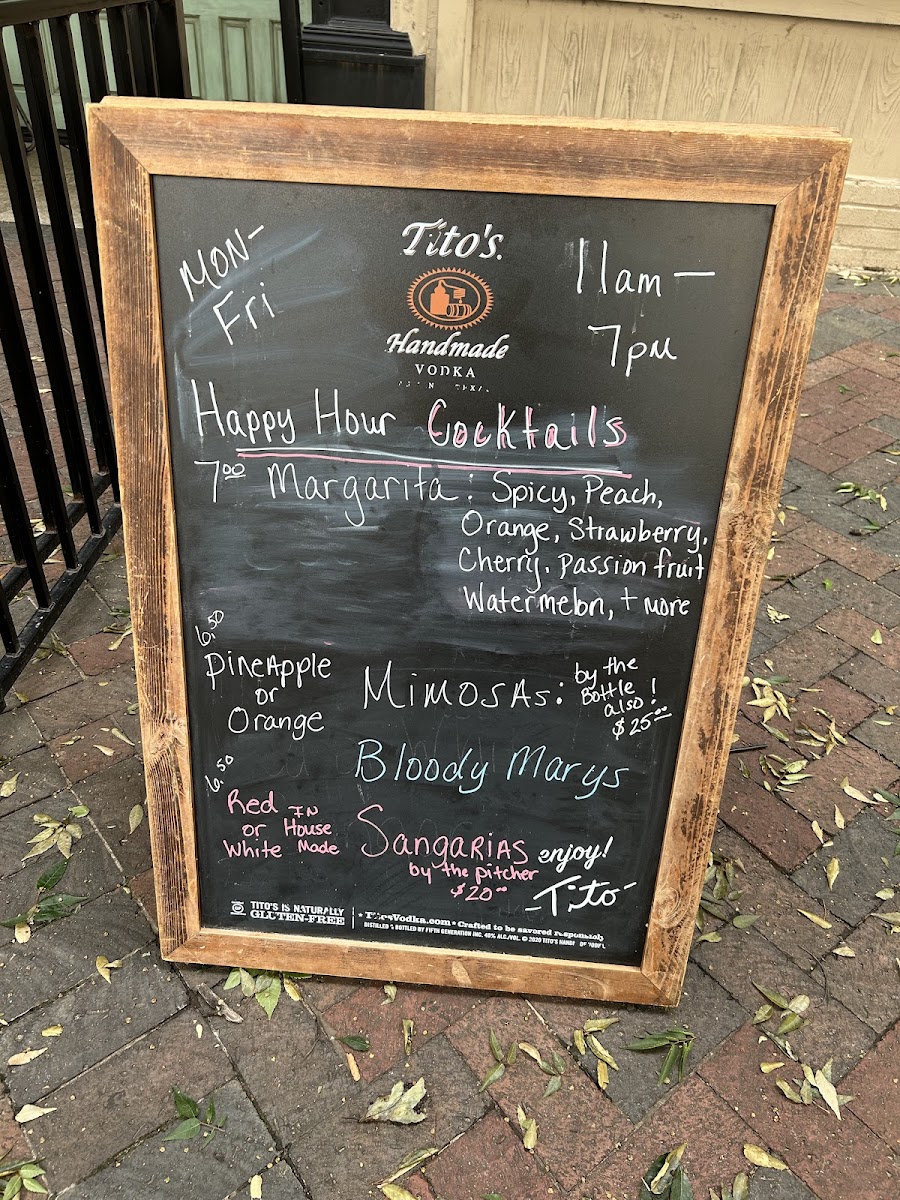 MON-
Fri
Tito's.
Handmade
VODKA
11am -
7pm
Happy Hour Cocktails
7.00 Margarita: Spicy, Peach,
Orange, Strawberry,
Cherry, Passion fruit
Watermelon, + more
6.50
Pineapple
or
Orange
Mimosas:
by the
Bottle
also!
$25.00
Bloody Marys
6.50
Red
or
White
IN
House
Made
Sangarias
by the pitcher
$20.00
enjoy!
-Tito-
TITO'S IS NATURALLY
GLUTEN-FREE
• Tito'sVodka.com • Crafted to be savored responsibly
DISTILLED & BOTTLED BY FIFTH GENERATION INC. 40% ALC./VOL. © 2020 TITO'S